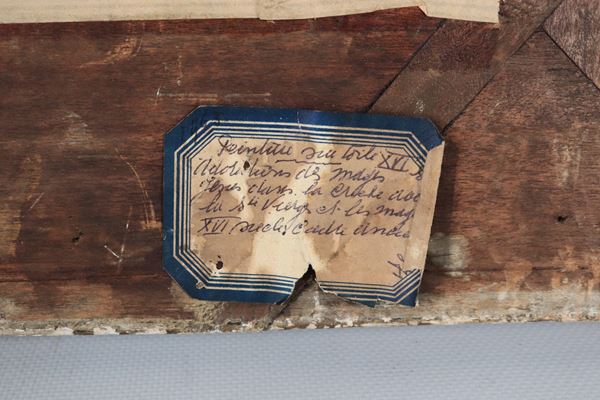 Peinture sur toile XVI s
Adorations des mages
Jésus dans la crèche avec
la Ste Vierge et les mag
XVI siècle Cadre ancie